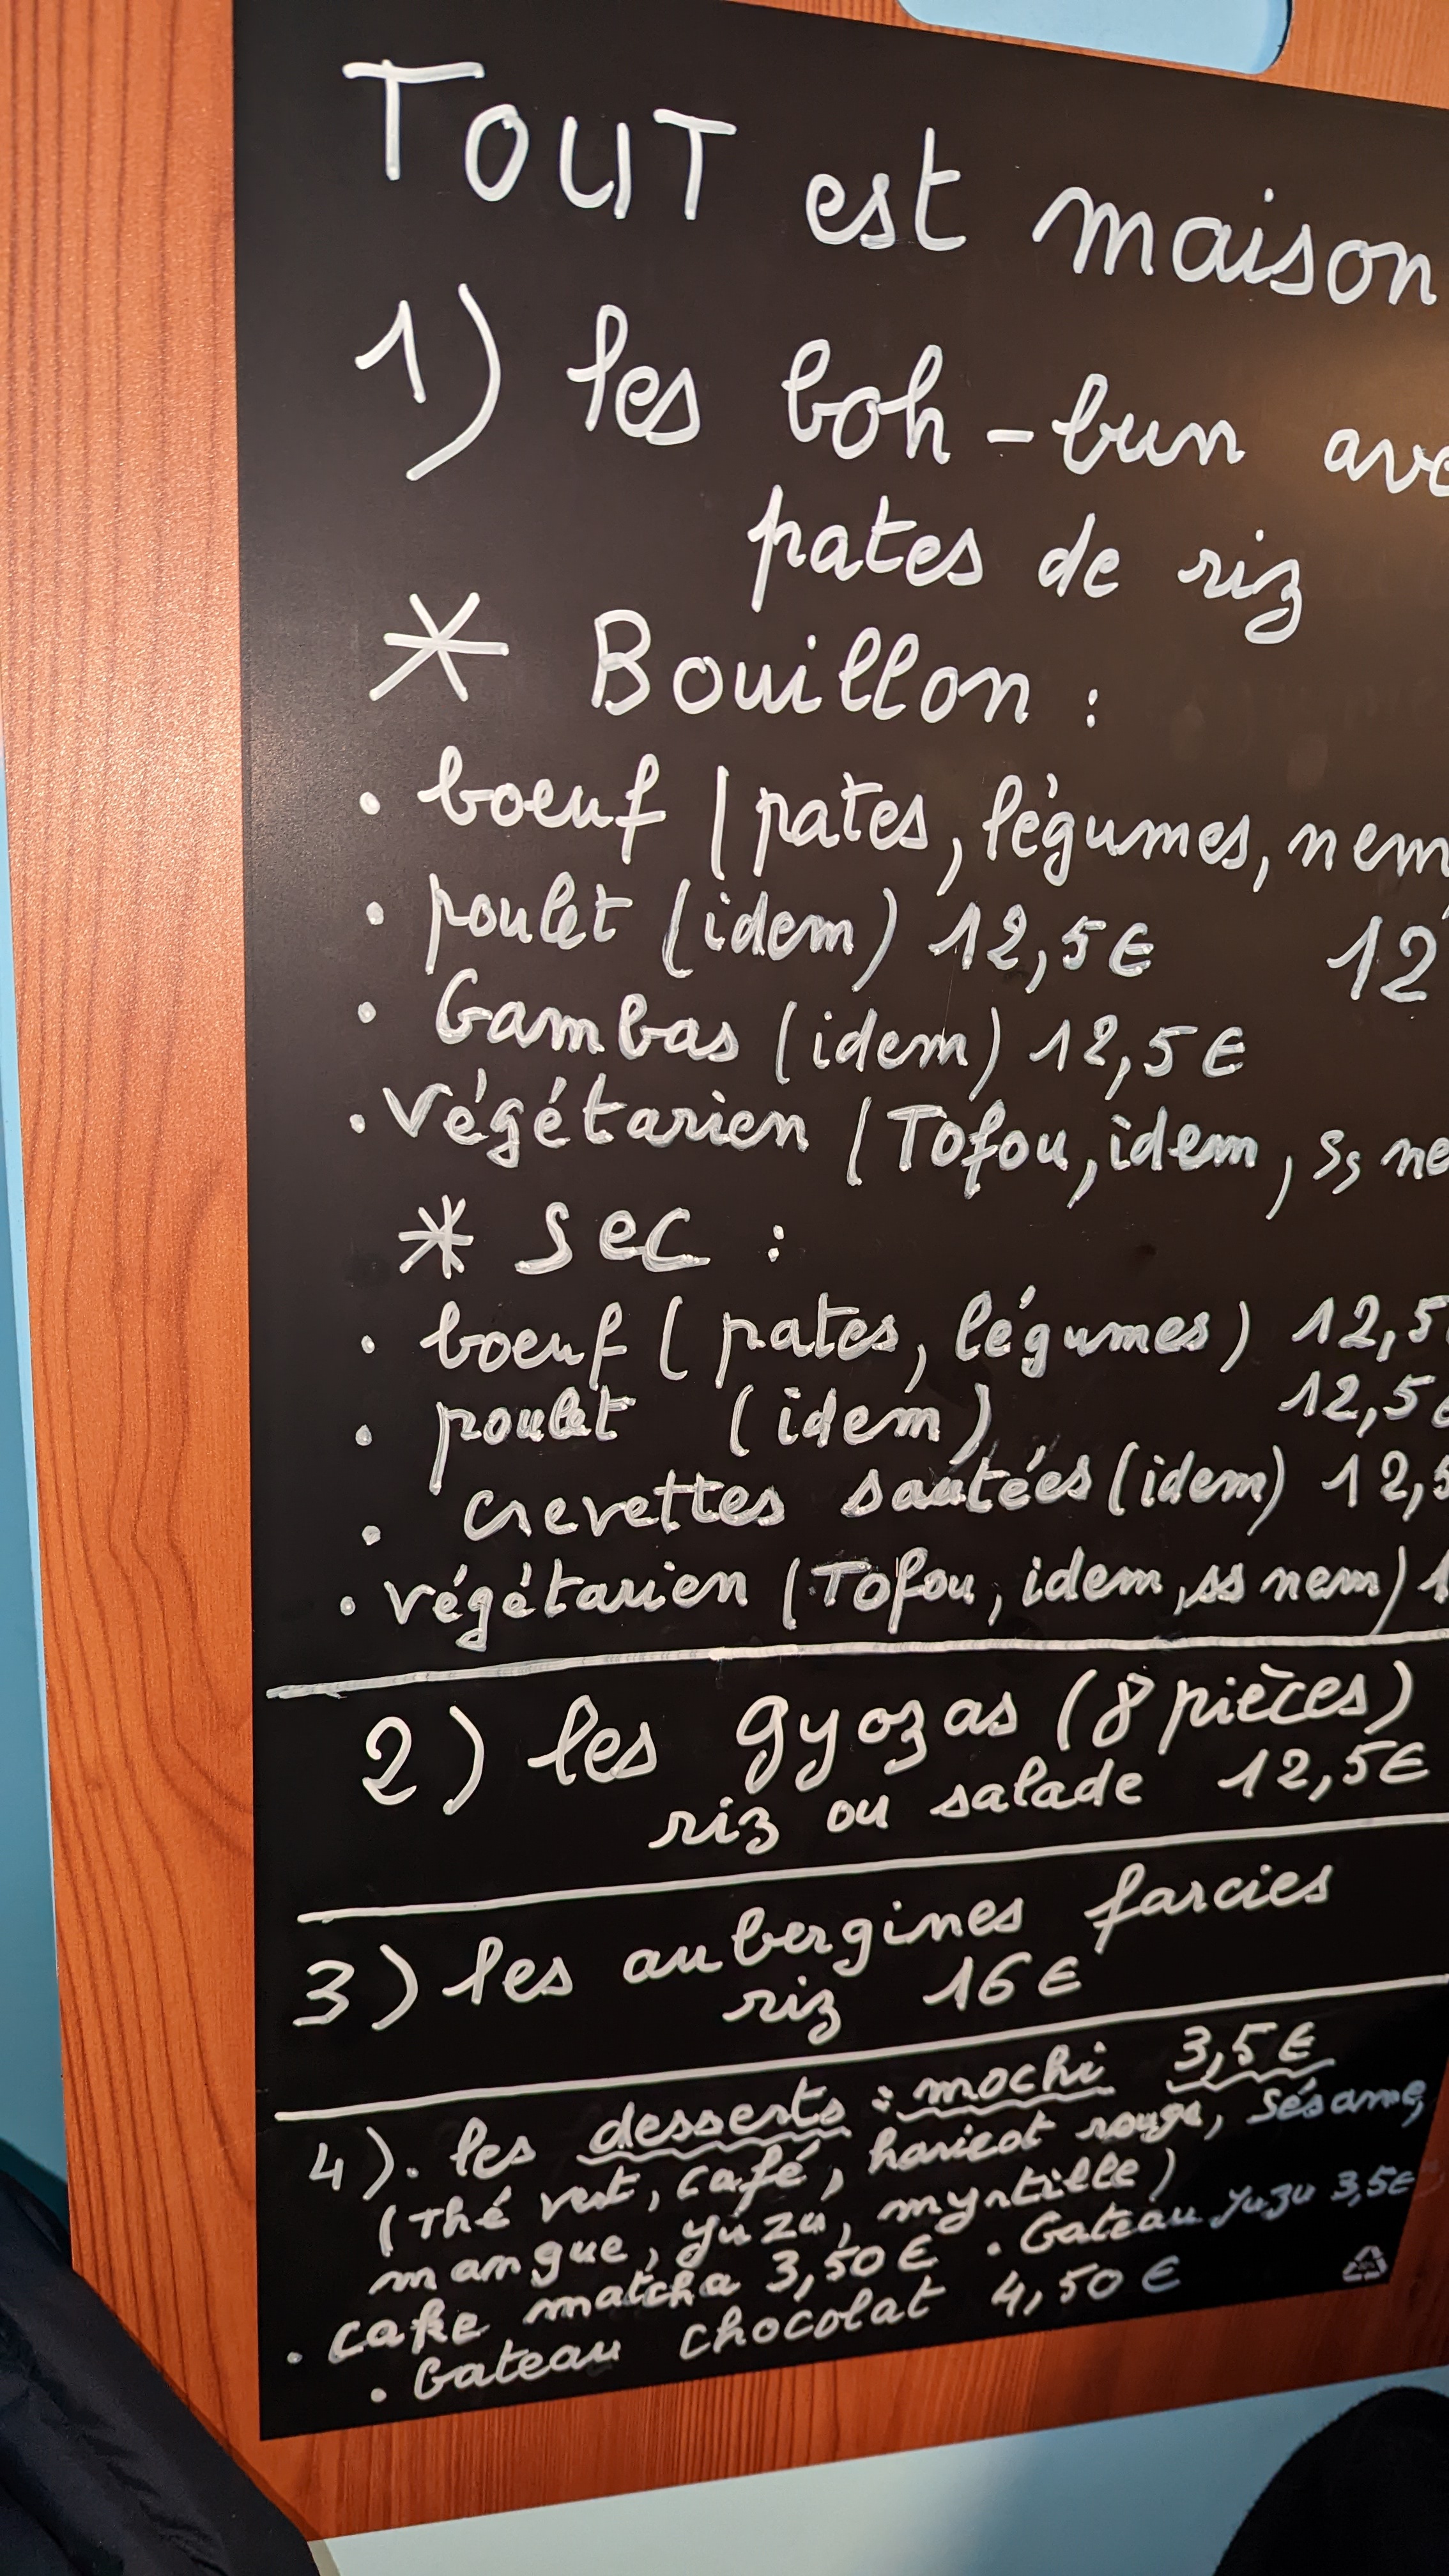 TOUT est maison
1) les boh-bun
pates de riz
* Bouillon :
• boeuf (pates, légumes, nem
• poulet (idem) 12,5€ 12
• Gambas (idem) 12,5€
• Végétarien (Tofou, idem, ss
* sec :
• boeuf (pates, légumes) 12,5
• poulet (idem) 12,5€
• crevettes sautées (idem) 12,5
• végétarien (Tofou, idem, ss nem)
2) les gyozas (8 pièces)
riz ou salade 12,5€
3) les aubergines farcies
riz 16€
4). les desserts : mochi 3,5€
(Thé vert, café, haricot rouge, sésame,
mangue, yuzu, myrtille)
• cake matcha 3,50€ • Gateau yuzu 3,5€
• Gateau chocolat 4,50€